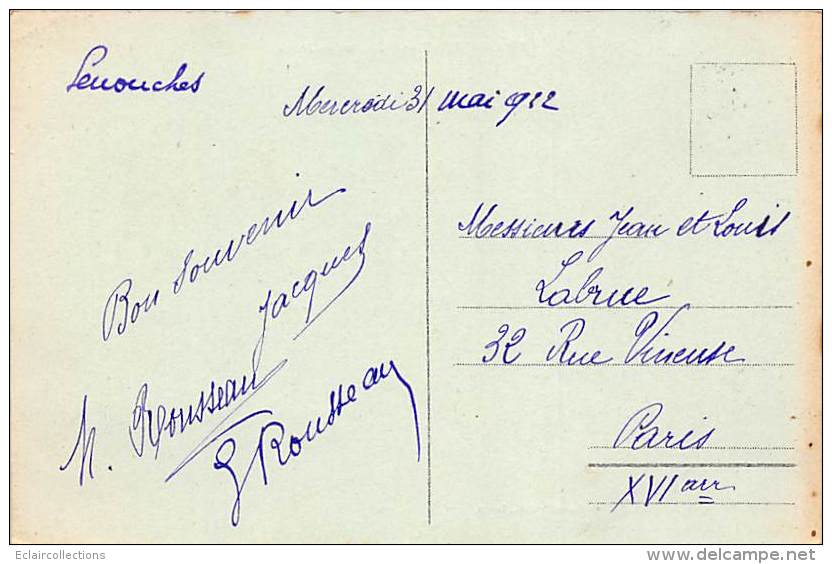 Senonches
Mercredi 31 mai 1922
Bon Souvenir
Jacques
M. Rousseau
G Rousseau
Messieurs Jean et Louis
Labrue
32 Rue Vineuse
Paris
XVI arr
Eclaircollections
delcampe.net